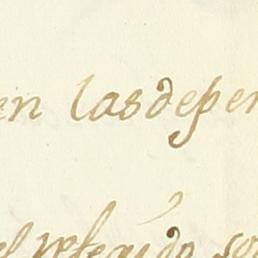 en lasdepen
el referido so